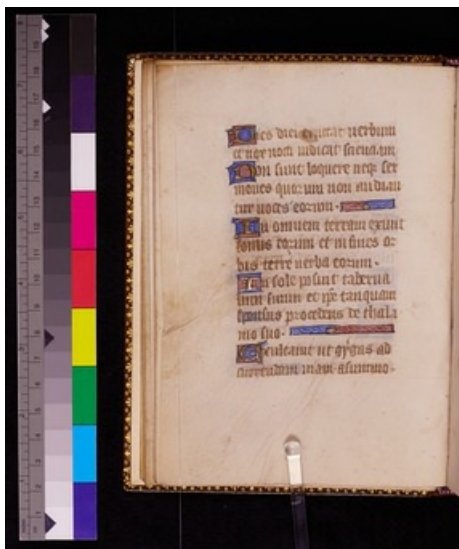 Dies diei eructat verbum
et nox nocti indicat scienciam
Non sunt loquele neq3 ser
mones quorum non audian
tur voces eorum.
In omnem terram exivit
sonus eorum et in fines or
bis terre verba eorum.
In sole posuit taberna
culum suum et ip̄e tanquam
sponsus procedens de thala
mo suo.
Exultavit ut gygas ad
currendam viam a summo